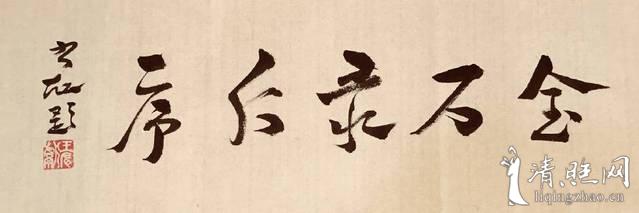 金石录后序
题
清照网
liqingzhao.cn